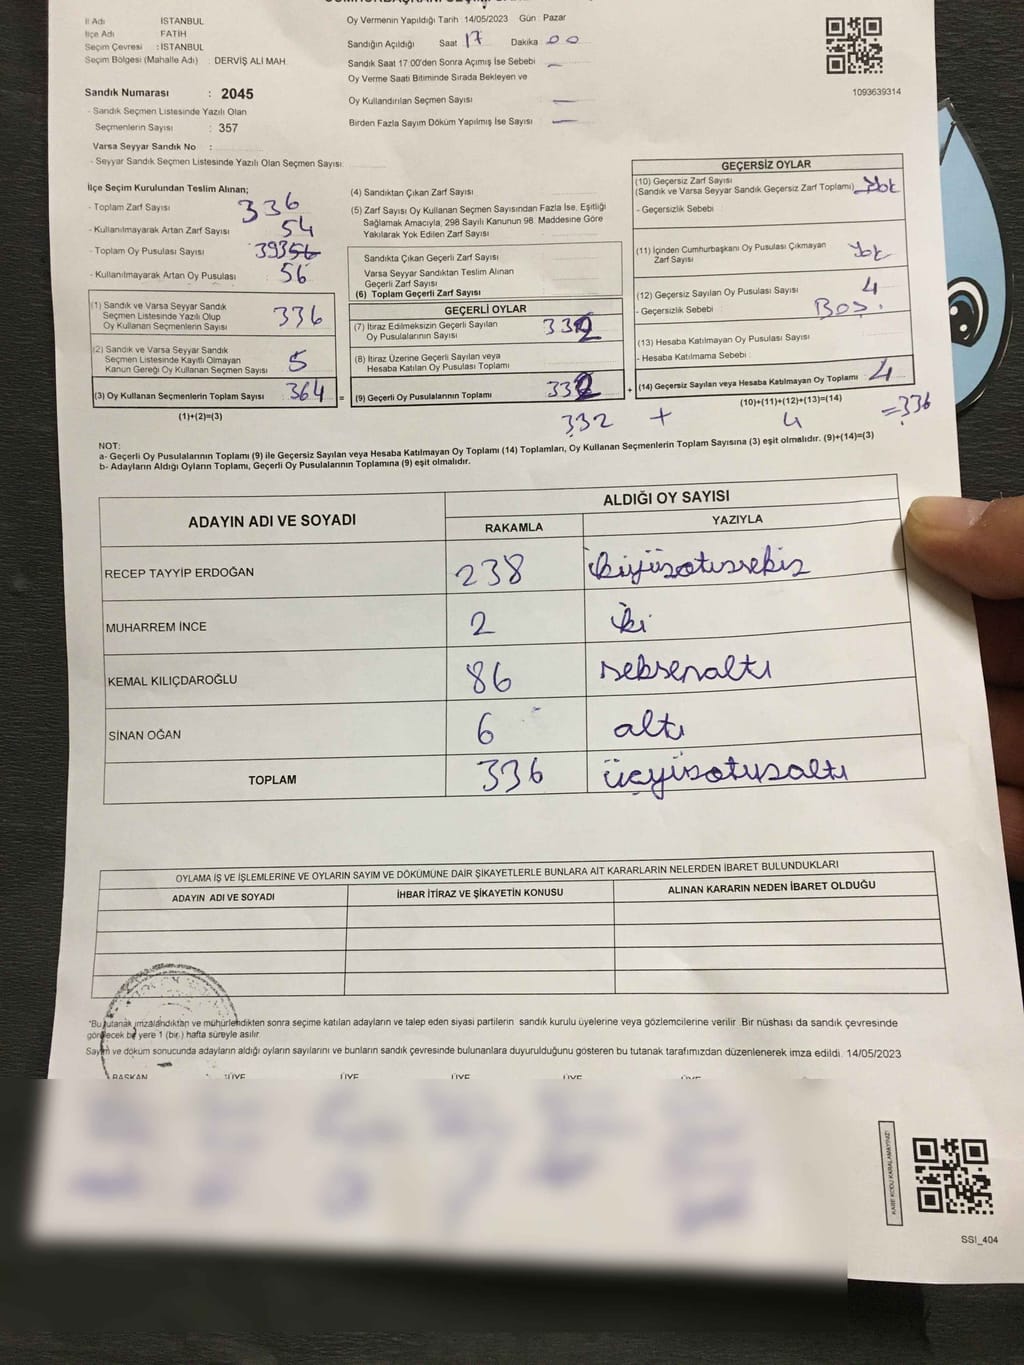 İl Adı İSTANBUL
İlçe Adı FATİH
Seçim Çevresi : İSTANBUL
Seçim Bölgesi (Mahalle Adı) : DERVİŞ ALİ MAH.
Sandık Numarası : 2045
- Sandık Seçmen Listesinde Yazılı Olan
Seçmenlerin Sayısı : 357
Varsa Seyyar Sandık No :
- Seyyar Sandık Seçmen Listesinde Yazılı Olan Seçmen Sayısı:
Oy Vermenin Yapıldığı Tarih 14/05/2023 Gün : Pazar
Sandığın Açıldığı Saat 17 Dakika 00
Sandık Saat 17:00'den Sonra Açımış İse Sebebi —
Oy Verme Saati Bitiminde Sırada Bekleyen ve
Oy Kullandırılan Seçmen Sayısı —
Birden Fazla Sayım Döküm Yapılmış İse Sayısı —
1093639314
İlçe Seçim Kurulundan Teslim Alınan;
- Toplam Zarf Sayısı 336
- Kullanılmayarak Artan Zarf Sayısı 54
- Toplam Oy Pusulası Sayısı
- Kullanılmayarak Artan Oy Pusulası 56
(1) Sandık ve Varsa Seyyar Sandık
Seçmen Listesinde Yazılı Olup
Oy Kullanan Seçmenlerin Sayısı 336
(2) Sandık ve Varsa Seyyar Sandık
Seçmen Listesinde Kayıtlı Olmayan
Kanun Gereği Oy Kullanan Seçmen Sayısı 5
(3) Oy Kullanan Seçmenlerin Toplam Sayısı : 364 =
(1)+(2)=(3)
(4) Sandıktan Çıkan Zarf Sayısı
(5) Zarf Sayısı Oy Kullanan Seçmen Sayısından Fazla İse, Eşitliği
Sağlamak Amacıyla, 298 Sayılı Kanunun 98. Maddesine Göre
Yakılarak Yok Edilen Zarf Sayısı
Sandıkta Çıkan Geçerli Zarf Sayısı
Varsa Seyyar Sandıktan Teslim Alınan
Geçerli Zarf Sayısı
(6) Toplam Geçerli Zarf Sayısı
GEÇERLİ OYLAR
(7) İtiraz Edilmeksizin Geçerli Sayılan
Oy Pusulalarının Sayısı 332
(8) İtiraz Üzerine Geçerli Sayılan veya
Hesaba Katılan Oy Pusulası Toplamı
(9) Geçerli Oy Pusulalarının Toplamı 332 +
GEÇERSİZ OYLAR
(10) Geçersiz Zarf Sayısı
(Sandık ve Varsa Seyyar Sandık Geçersiz Zarf Toplamı) Yok
- Geçersizlik Sebebi
(11) İçinden Cumhurbaşkanı Oy Pusulası Çıkmayan
Zarf Sayısı Yok
(12) Geçersiz Sayılan Oy Pusulası Sayısı 4
- Geçersizlik Sebebi Boş.
(13) Hesaba Katılmayan Oy Pusulası Sayısı
- Hesaba Katılmama Sebebi
(14) Geçersiz Sayılan veya Hesaba Katılmayan Oy Toplamı : 4
(10)+(11)+(12)+(13)=(14)
332 + 4 =336
NOT:
a- Geçerli Oy Pusulalarının Toplamı (9) ile Geçersiz Sayılan veya Hesaba Katılmayan Oy Toplamı (14) Toplamları, Oy Kullanan Seçmenlerin Toplam Sayısına (3) eşit olmalıdır. (9)+(14)=(3)
b- Adayların Aldığı Oyların Toplamı, Geçerli Oy Pusulalarının Toplamına (9) eşit olmalıdır.
ADAYIN ADI VE SOYADI ALDIĞI OY SAYISI
RAKAMLA YAZIYLA
RECEP TAYYİP ERDOĞAN 238 ikiyüzotuzsekiz
MUHARREM İNCE 2 iki
KEMAL KILIÇDAROĞLU 86 seksenaltı
SİNAN OĞAN 6 altı
TOPLAM 336 üçyüzotuzaltı
OYLAMA İŞ VE İŞLEMLERİNE VE OYLARIN SAYIM VE DÖKÜMÜNE DAİR ŞİKAYETLERLE BUNLARA AİT KARARLARIN NELERDEN İBARET BULUNDUKLARI
ADAYIN ADI VE SOYADI İHBAR İTİRAZ VE ŞİKAYETİN KONUSU ALINAN KARARIN NEDEN İBARET OLDUĞU
*Bu tutanak imzalandıktan ve mühürlendikten sonra seçime katılan adayların ve talep eden siyasi partilerin sandık kurulu üyelerine veya gözlemcilerine verilir. Bir nüshası da sandık çevresinde
görülecek bir yere 1 (bir) hafta süreyle asılır.
Sayım ve döküm sonucunda adayların aldığı oyların sayılarını ve bunların sandık çevresinde bulunanlara duyurulduğunu gösteren bu tutanak tarafımızdan düzenlenerek imza edildi. 14/05/2023
BAŞKAN ÜYE ÜYE ÜYE ÜYE ÜYE
KARE KODU KARALAMAYINIZ!
SSI_404